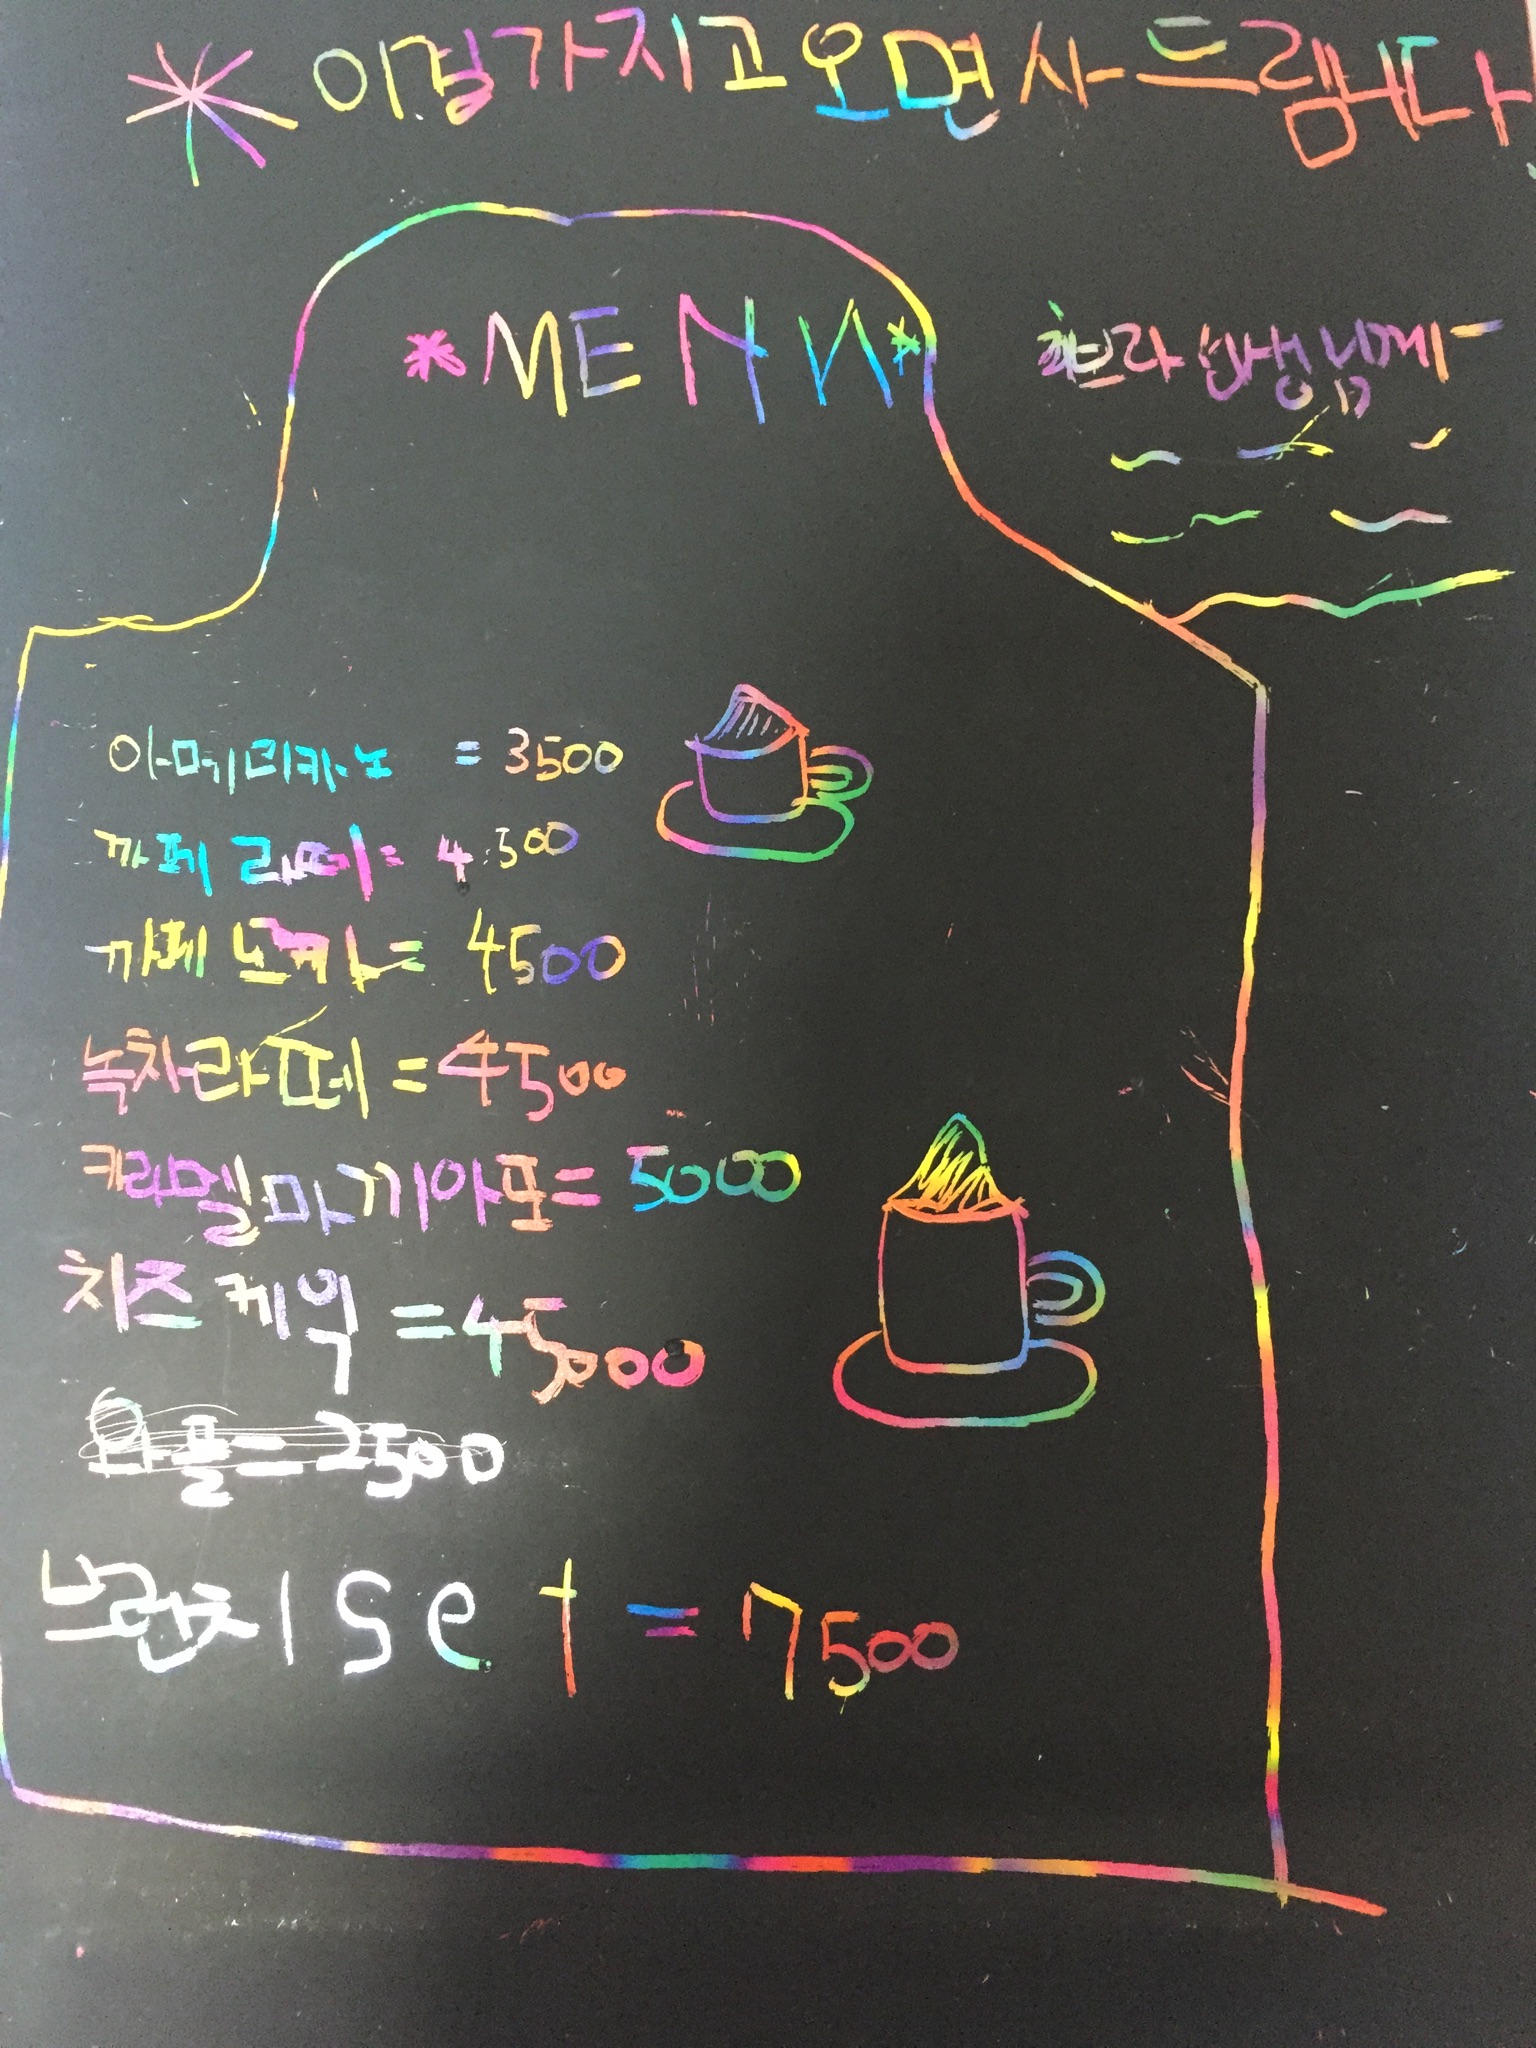 이걸가지고오면사드립니다
*MENU*
선생님께
아메리카노 = 3500
까페 라떼 = 4500
까페 모카 = 4500
녹차라떼 = 4500
카라멜마끼아또 = 5000
치즈 케익 = 45000
와플 = 2500
브런치 set = 7500